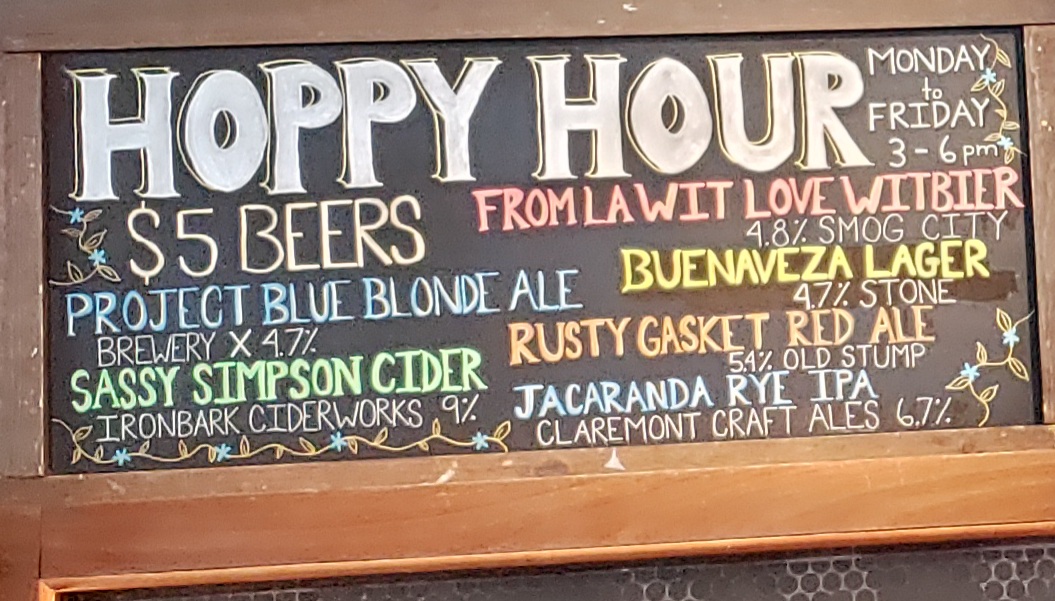 HOPPY HOUR
MONDAY
to
FRIDAY
3 - 6 pm
$5 BEERS
PROJECT BLUE BLONDE ALE
BREWERY X 4.7%
SASSY SIMPSON CIDER
IRONBARK CIDERWORKS 9%
FROM LA WIT LOVE WITBIER
4.8% SMOG CITY
BUENAVEZA LAGER
4.7% STONE
RUSTY GASKET RED ALE
5.4% OLD STUMP
JACARANDA RYE IPA
CLAREMONT CRAFT ALES 6.7%